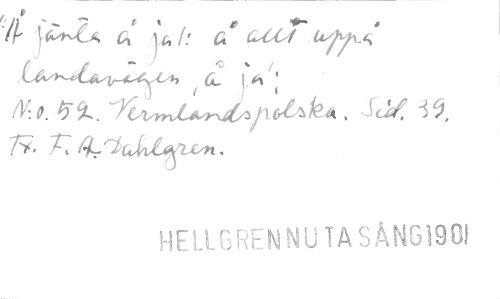 "Å jänta å ja!: å allt uppå
landavägen, å ja';
N:o. 59. Vermlandspolska. Sid. 39.
Tx. F. A. Dahlgren.
HELLGREN NU TA SÅNG 1901